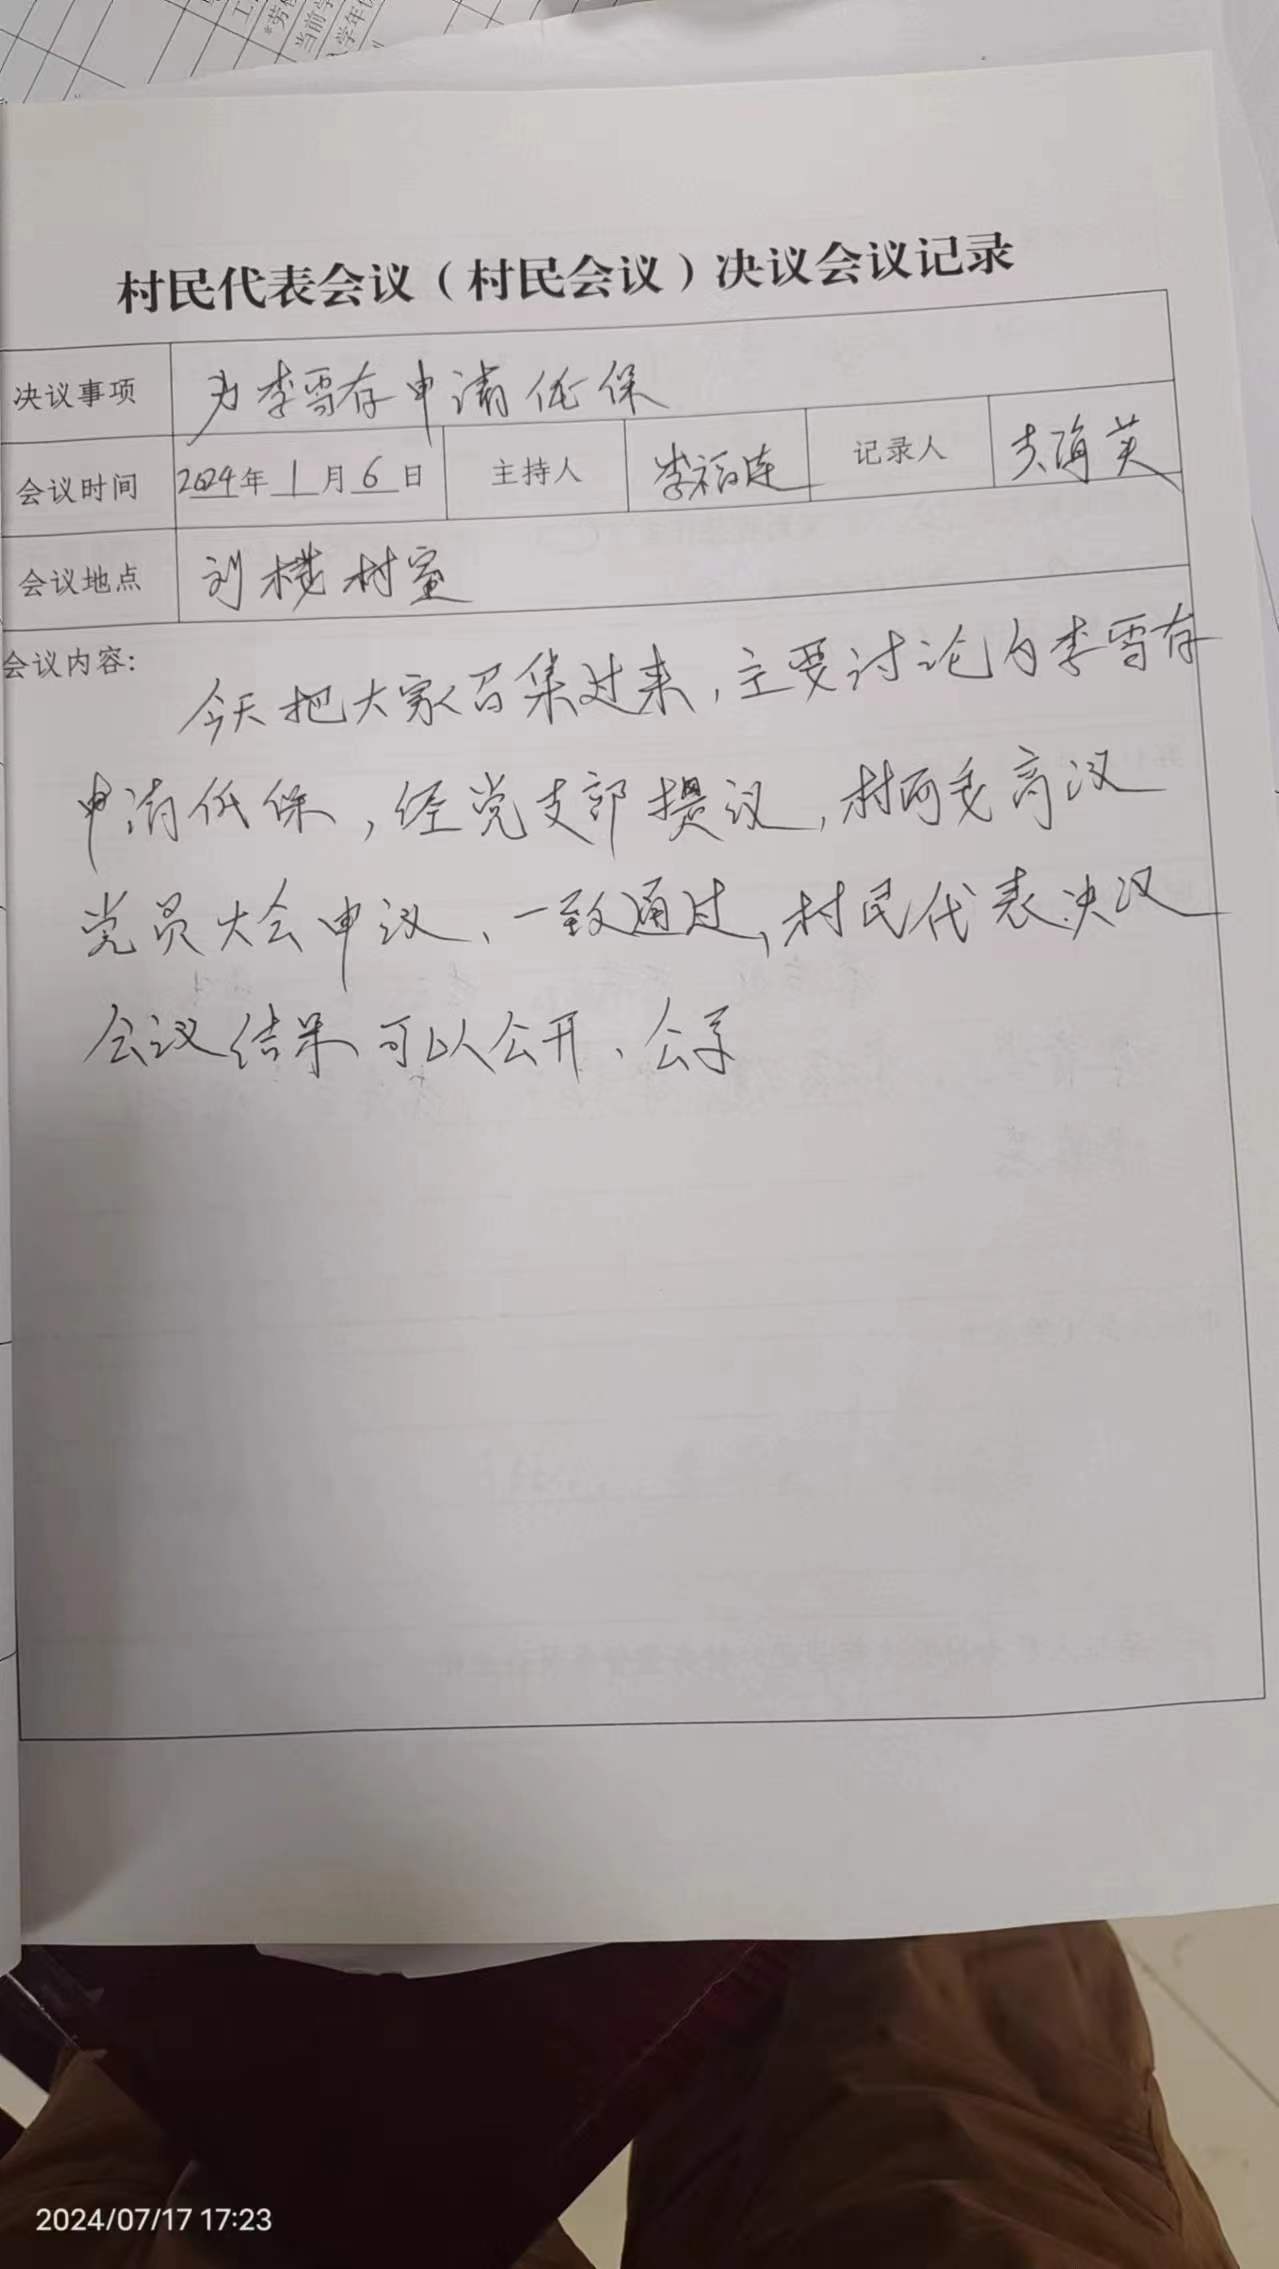 工
劳
当前学
学年仍
村民代表会议（村民会议）决议会议记录
决议事项 为李雪存申请低保
会议时间 2024年 1 月 6 日 主持人 李福连 记录人 海英
会议地点 刘楼村室
会议内容：
今天把大家召集过来，主要讨论为李雪存
申请低保，经党支部提议，村两委商议
党员大会审议、一致通过，村民代表决议
会议结果可以公开、公示
2024/07/17 17:23